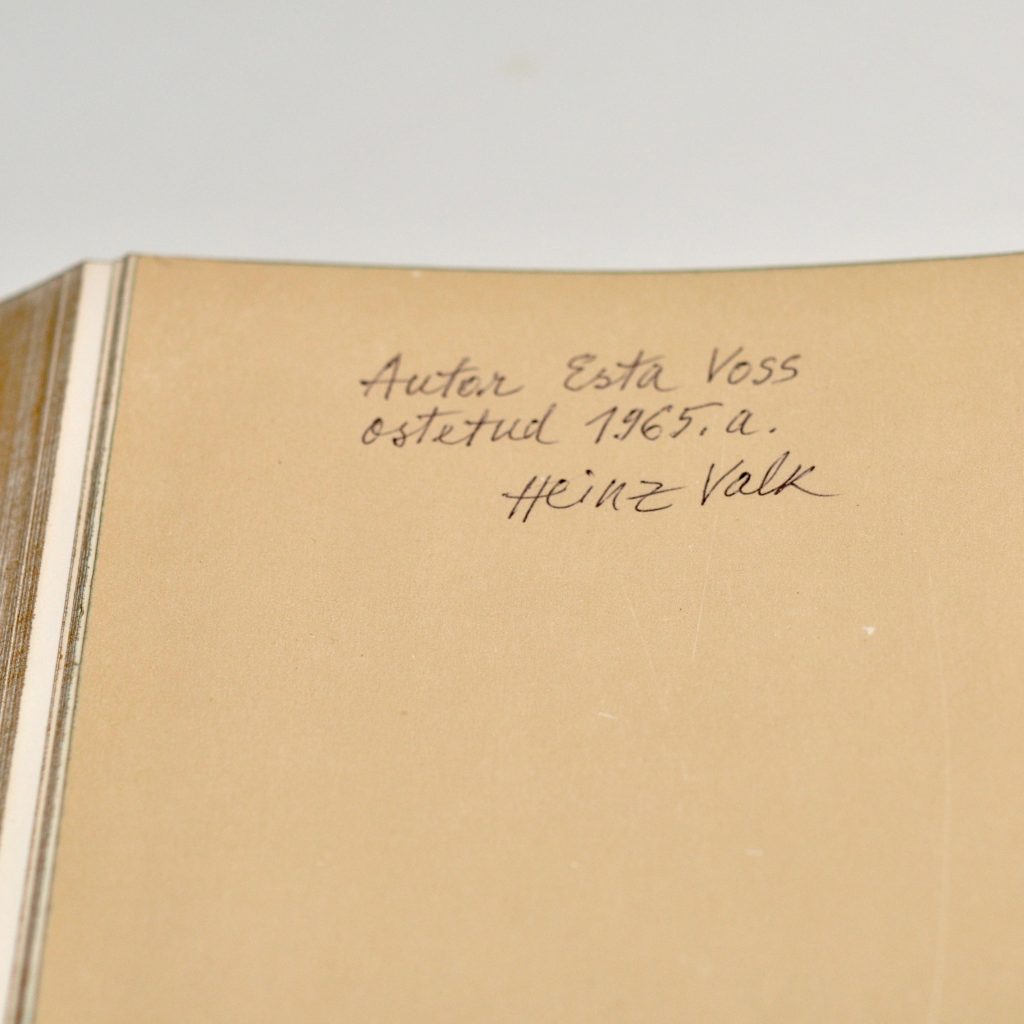 Autor Esta Voss
ostetud 1965. a.
Heinz Valk